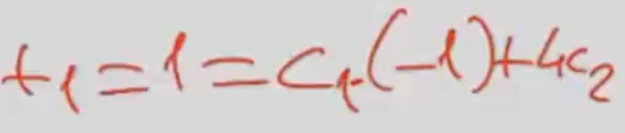 t₁ = 1 = c₁·(-1) + 4c₂